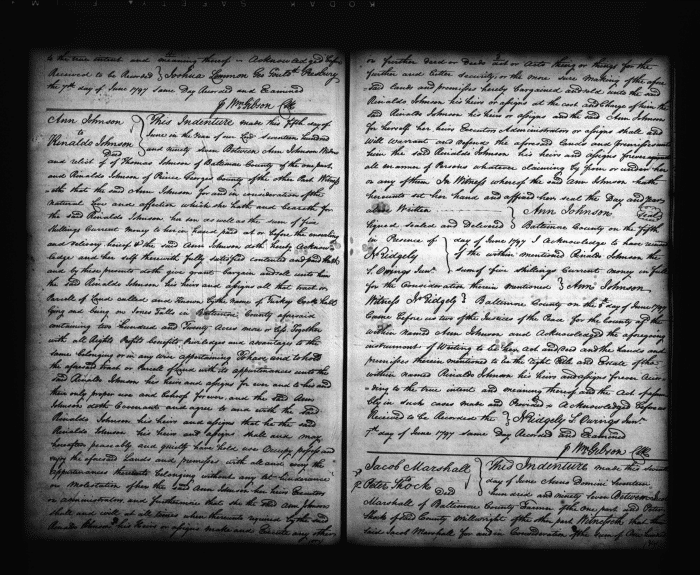 to the true intent and meaning thereof - Acknowledged before
Received to be Recorded } Joshua Lemmon Geo Gouldh. Presbury
the 7th day of June 1797 Same Day Recorded and Examined
Wm Gibson Clk
Ann Johnson
to
Rinaldo Johnson
Deed
This Indenture made this fifth day of
June in the Year of our Lord Seventeen hundred
and ninety seven Between Ann Johnson Widow
and relict of Thomas Johnson of Baltimore County of the one part
and Rinaldo Johnson of Prince Georges County of the other Part Witness
eth that the said Ann Johnson for and in consideration of the
natural Love and affection which she hath and beareth for
the said Rinaldo Johnson her son as well as the sum of five
Shillings Current Money to her in hand paid at or before the ensealing
and delivery hereof the said Ann Johnson doth hereby Acknow
ledge and her self therewith fully satisfied contented and paid hath
and by these presents doth give grant bargain and sell unto him
the said Rinaldo Johnson his heirs and assigns all that tract or
Parcel of Land called and known by the name of Turkey Cock Hall
lying and being on Jones Falls in Baltimore County aforesaid
containing two hundred and Twenty Acres more or less Together
with all Rights Profits benefits Priviledges and advantages to the
same belonging or in any wise appertaining To have and to hold
the aforesaid tract or Parcel of Land with its appurtenances unto the
said Rinaldo Johnson his heirs and assigns for ever and to his and
their only proper use and behoof for ever and the said Ann
Johnson doth Covenant and agree to and with the said
Rinaldo Johnson his heirs and assigns that he the said
Rinaldo Johnson his heirs and assigns shall and may
hereafter peaceably and quietly have hold use Occupy possess and
enjoy the aforesaid Lands and premises with all and every the
appurtenances thereunto belonging without any let hinderance
or Molestation of her the said Ann Johnson her heirs Executors
or administrators and furthermore that she the said Ann Johnson
shall and will at all times when thereunto required by the said
Rinaldo Johnson his heirs or assigns make and Execute any other
or further deed or deeds Act or Acts thing or things for the
further and better security or the more sure making of the afore
said Lands and premises hereby bargained and sold unto the said
Rinaldo Johnson his heirs or assigns at the cost and Charge of him the
said Rinaldo Johnson his heirs or assigns and the said Ann Johnson
for herself her heirs Executors Administrators or assigns shall and
will warrant and Defend the aforesaid Lands and premises unto
him the said Rinaldo Johnson his heirs and assigns forever against
all manner of Persons whatever claiming by from or under her
or any of them In Witness whereof the said Ann Johnson hath
hereunto set her hand and affixed her seal the Day and year
above Written
Ann Johnson (Seal)
Signed sealed and Delivered } Baltimore County on the fifth
in Presence of
day of June 1797 I acknowledge to have received
N Ridgely
of the within mentioned Rinaldo Johnson the
S. Owings Junr.
sum of five shillings Current money in full
for the Consideration therein Mentioned } Ann Johnson
Witness N Ridgely } Baltimore County on the 5th day of June 1797
Came before us two of the Justices of the Peace for the County of the
within named Ann Johnson and Acknowledged the aforegoing
instrument of Writing to be her Act and deed and the Lands and
premises therein mentioned to be the right title and Estate of the
within named Rinaldo Johnson his heirs and assigns forever Accor
ding to the true intent and meaning thereof and the Act of Assem
bly in such cases made and Provided Acknowledged before us
Received to be Recorded the } N Ridgely S. Owings Junr.
7th day of June 1797 same Day Recorded and Examined
Wm Gibson Clk
Jacob Marshall
to
Peter Shock
Deed
This Indenture made this seventh
day of June Anno Domini Seventeen
hundred and ninety seven Between Jacob
Marshall of Baltimore County Farmer of the one part and Peter
Shock of said County millwright of the other part Witnesseth that the
said Jacob Marshall for and in Consideration of the sum of One hundred